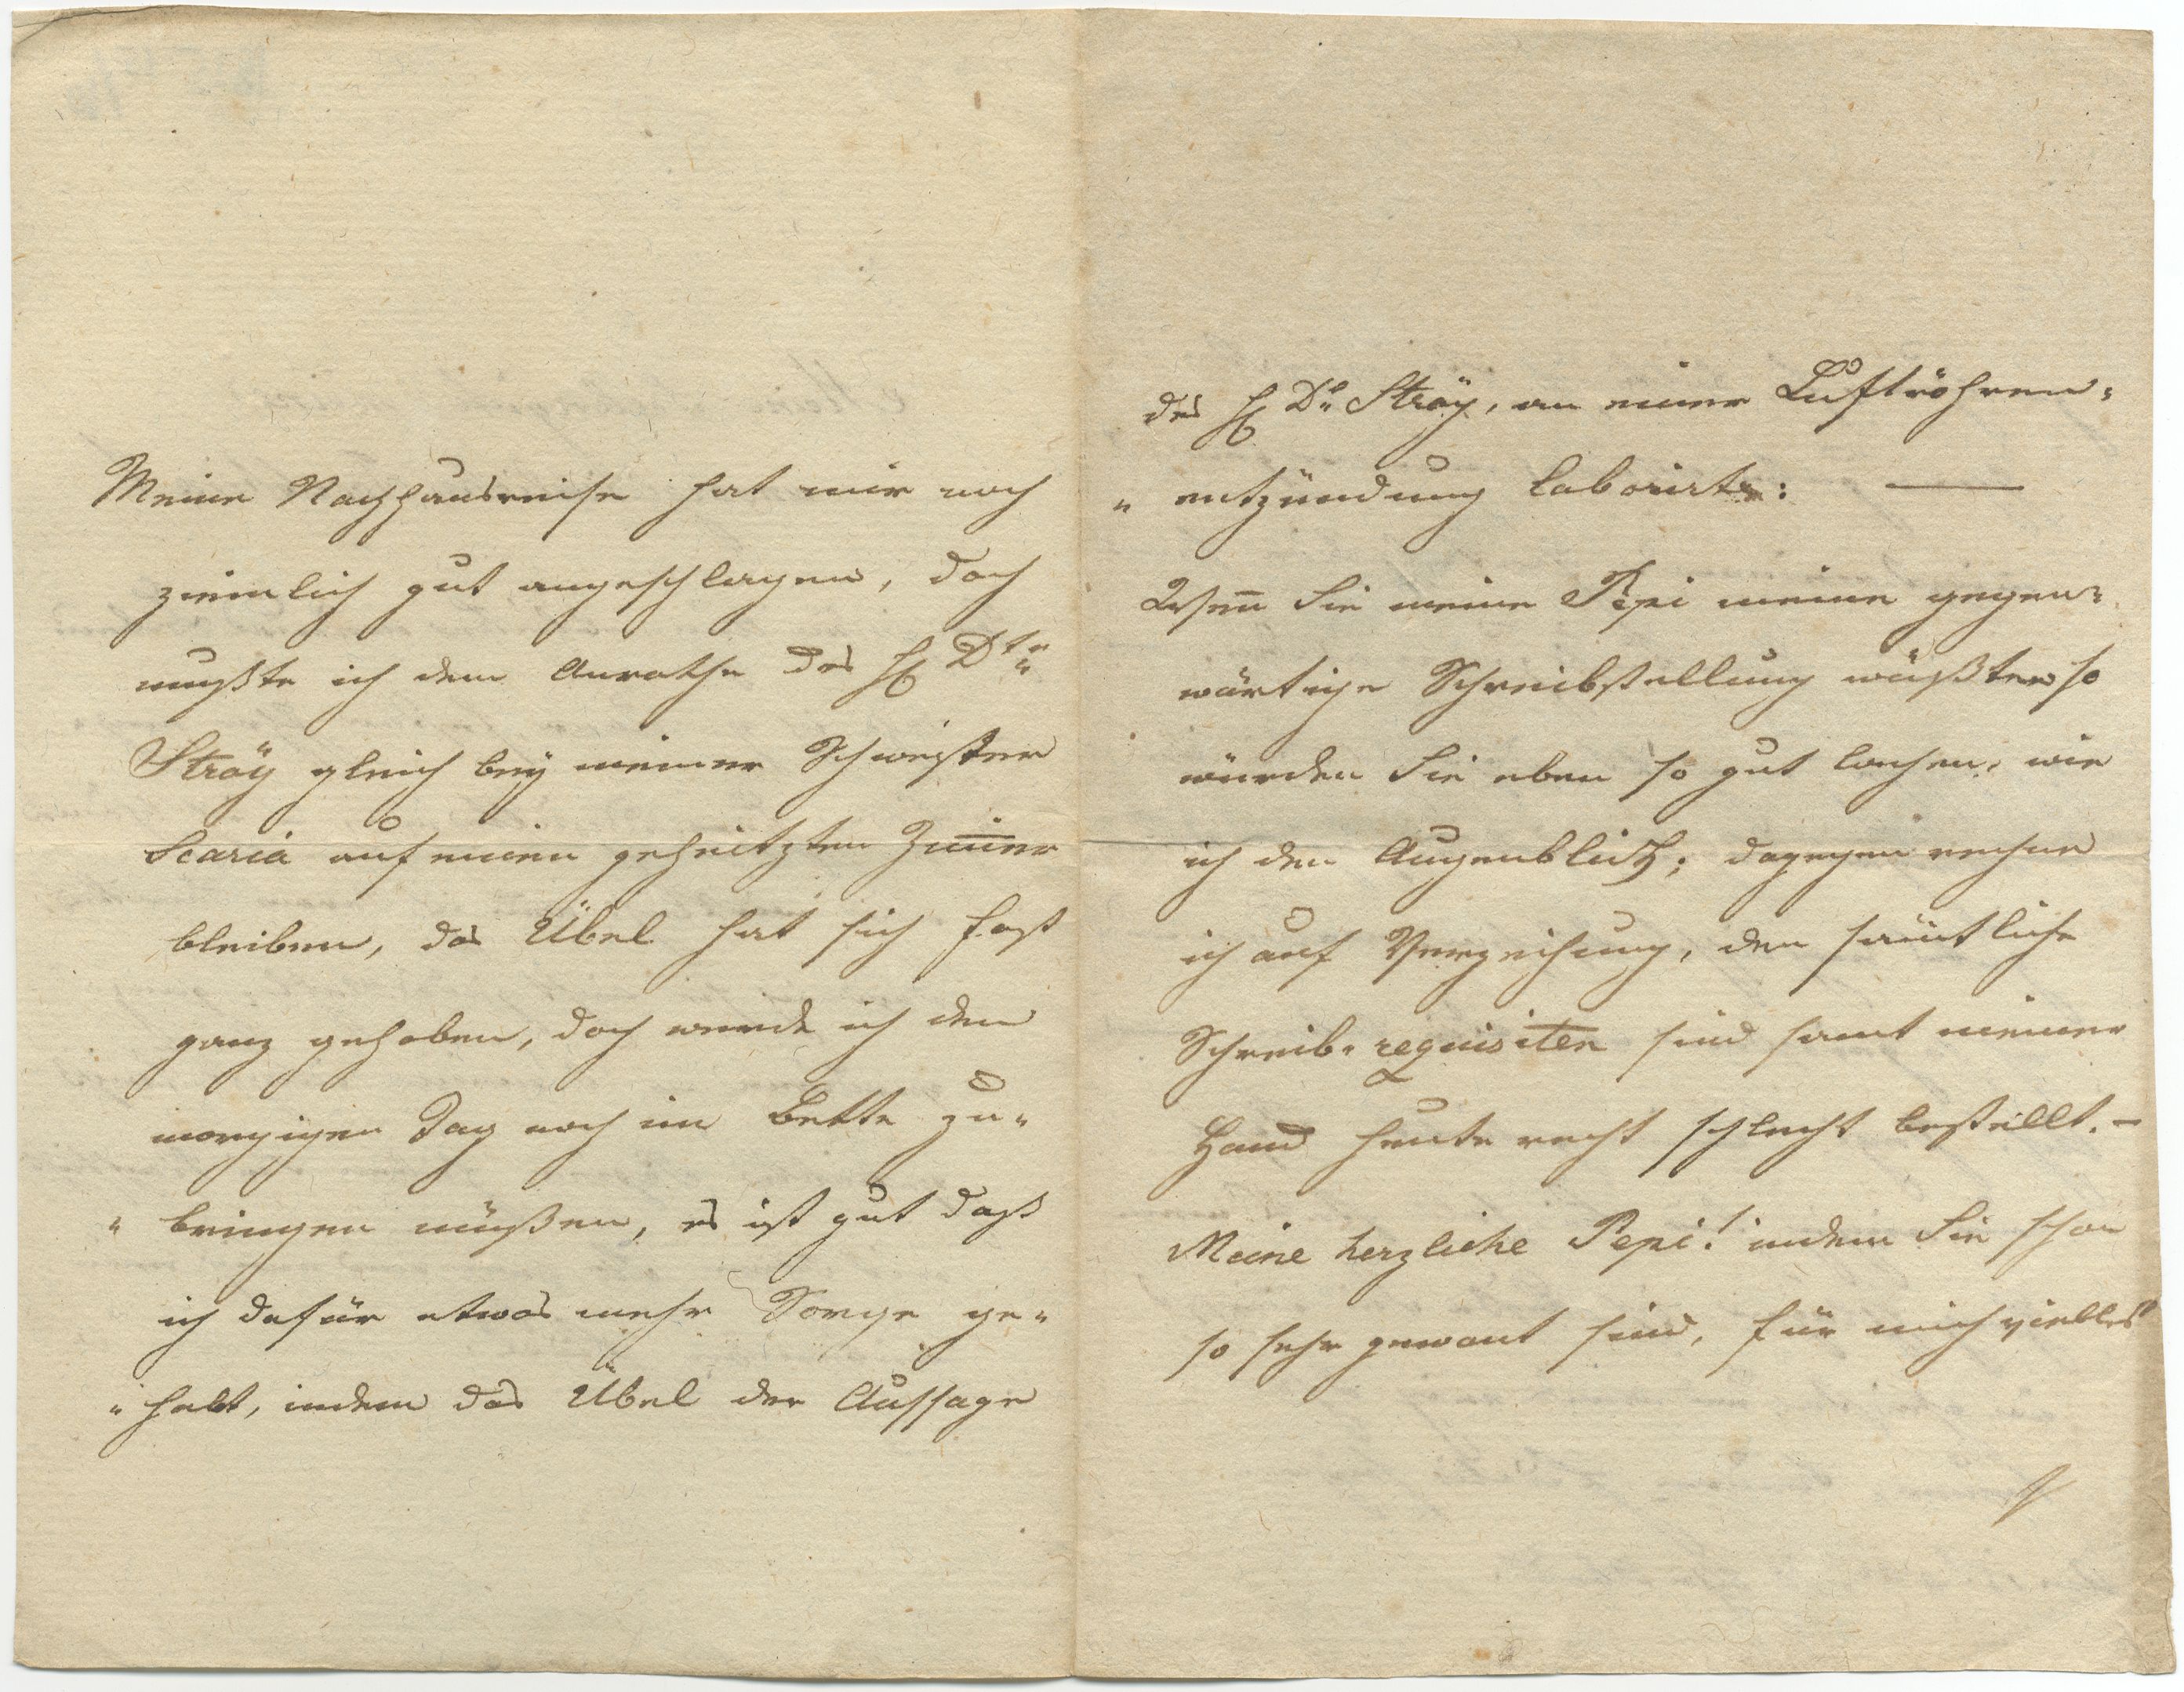 Meine Nachhausreise hat mir noch
ziemlich gut angeschlagen, doch
mußte ich dem Anrathe des H Dtr
Stray gleich bey meiner Schwester
Scaria auf einem geheitzten Zimer
bleiben, das Übel hat sich fast
ganz gehoben, doch werde ich den
morgigen Tag noch im Bette zu-
-bringen müßen, es ist gut daß
ich dafür etwas mehr Sorge ge-
-habt, indem das Übel der Aussage
des H Dr Stray, an einer Luftröhren-
-entzündung laborirte: —
Wen Sie meine Pepi meine gegen-
wärtige Schreibstellung wüßten so
würden Sie eben so gut lachen, wie
ich den Augenblick; dagegen rechne
ich auf Verzeihung, den sämtliche
Schreib-requisiten sind samt meiner
Hand heute recht schlecht bestellt. –
Meine herzliche Pepi! indem Sie schon
so sehr gewant sind, für mich vielles